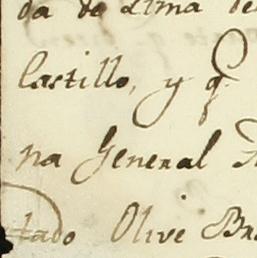 da de Lima de
Castillo, y q
na General
tado Olive Br